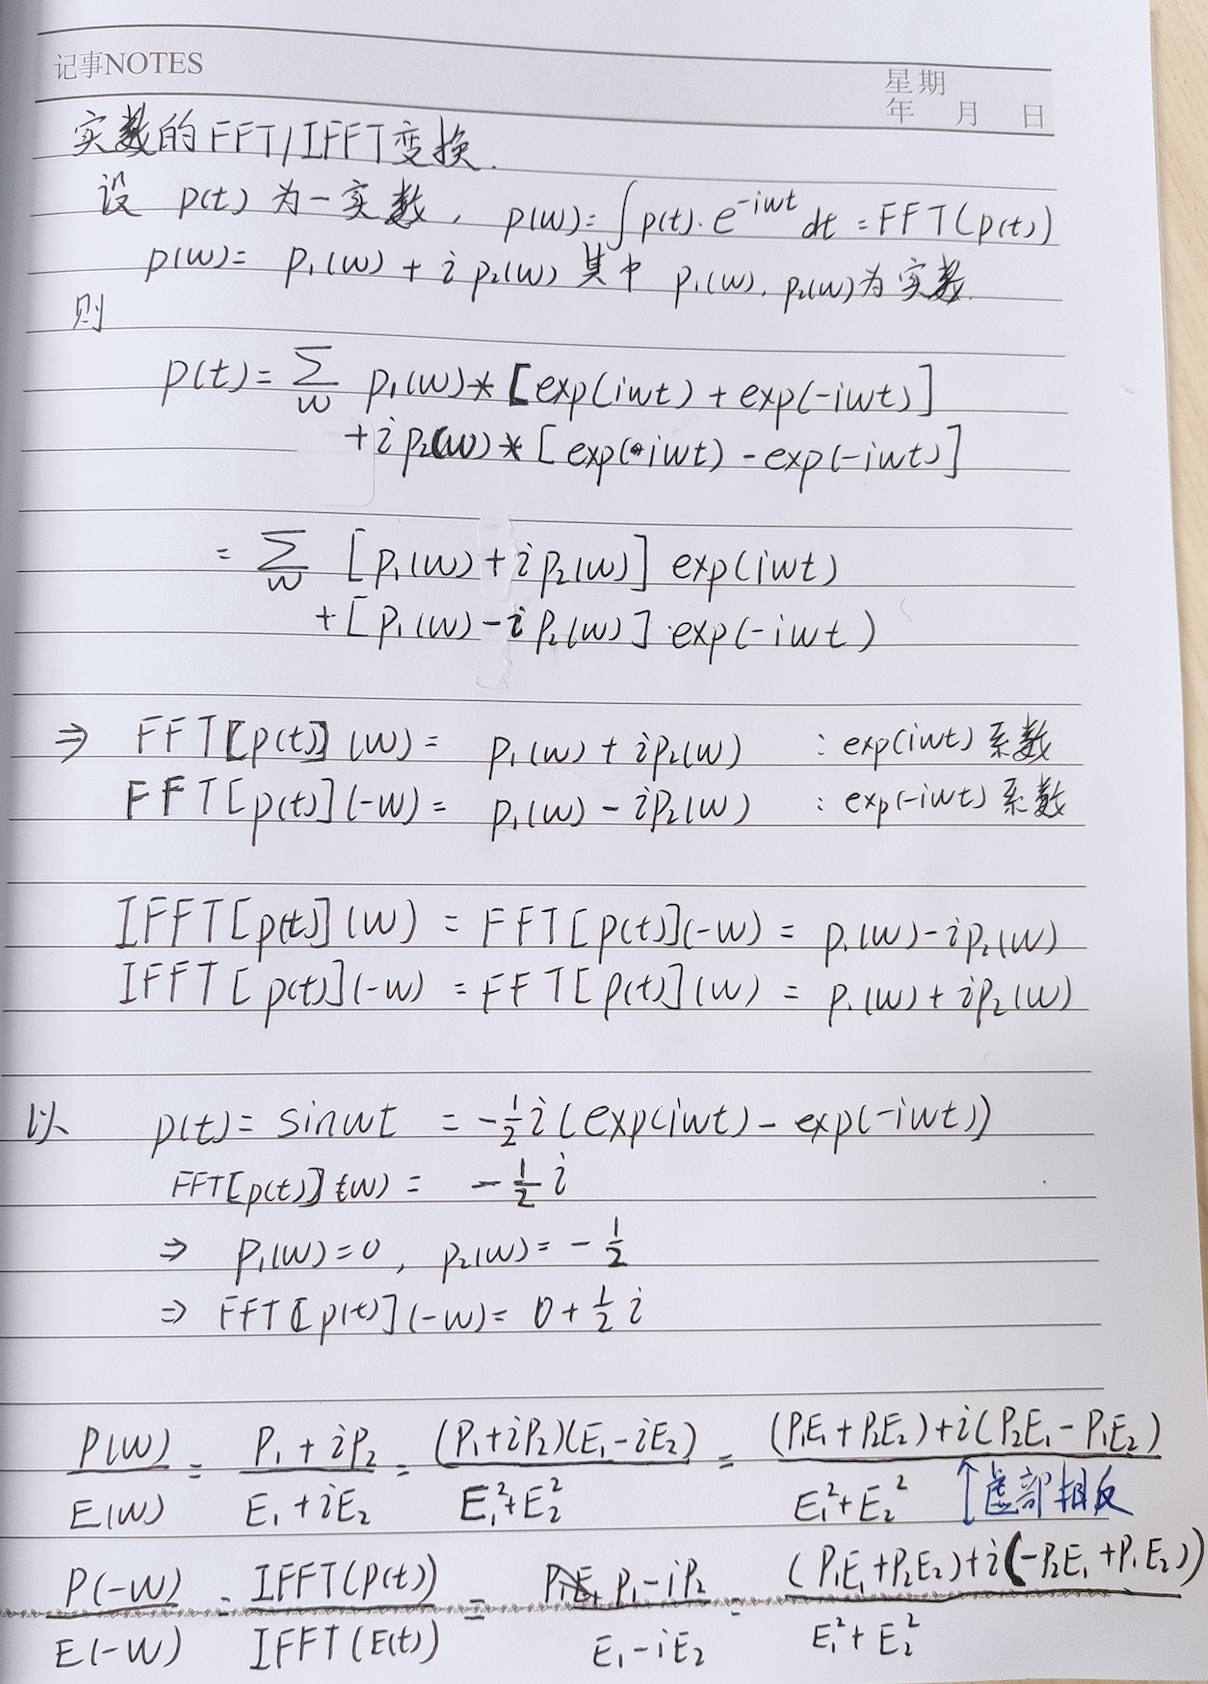 记事NOTES
星期
年 月 日
实数的FFT/IFFT变换.
设 p(t)为一实数, p(w)=∫p(t)·e^{-iwt}dt=FFT(p(t))
p(w)= p₁(w) + i p₂(w) 其中 p₁(w), p₂(w)为实数.
则
p(t)= Σ_w p₁(w)*[exp(iwt)+exp(-iwt)]
+i p₂(w)*[exp(iwt)-exp(-iwt)]
= Σ_w [p₁(w)+i p₂(w)] exp(iwt)
+[p₁(w)-i p₂(w)]·exp(-iwt)
⇒ FFT[p(t)](w)= p₁(w)+ip₂(w) : exp(iwt)系数
FFT[p(t)](-w)= p₁(w)-ip₂(w) : exp(-iwt)系数
IFFT[p(t)](w) = FFT[p(t)](-w)= p₁(w)-ip₂(w)
IFFT[p(t)](-w) =FFT[p(t)](w) = p₁(w)+ip₂(w)
以 p(t)= sinwt = -½i(exp(iwt)-exp(-iwt))
FFT[p(t)](w)= -½i
⇒ p₁(w)=0, p₂(w)=-½
⇒ FFT[p(t)](-w)= 0+½i
P(w)/E(w) = (P₁+iP₂)/(E₁+iE₂) = (P₁+iP₂)(E₁-iE₂)/(E₁²+E₂²) = ((P₁E₁+P₂E₂)+i(P₂E₁-P₁E₂))/(E₁²+E₂²)
↑虚部相反
P(-w)/E(-w) = IFFT(p(t))/IFFT(E(t)) = (P₁-iP₂)/(E₁-iE₂) = ((P₁E₁+P₂E₂)+i(-P₂E₁+P₁E₂))/(E₁²+E₂²)